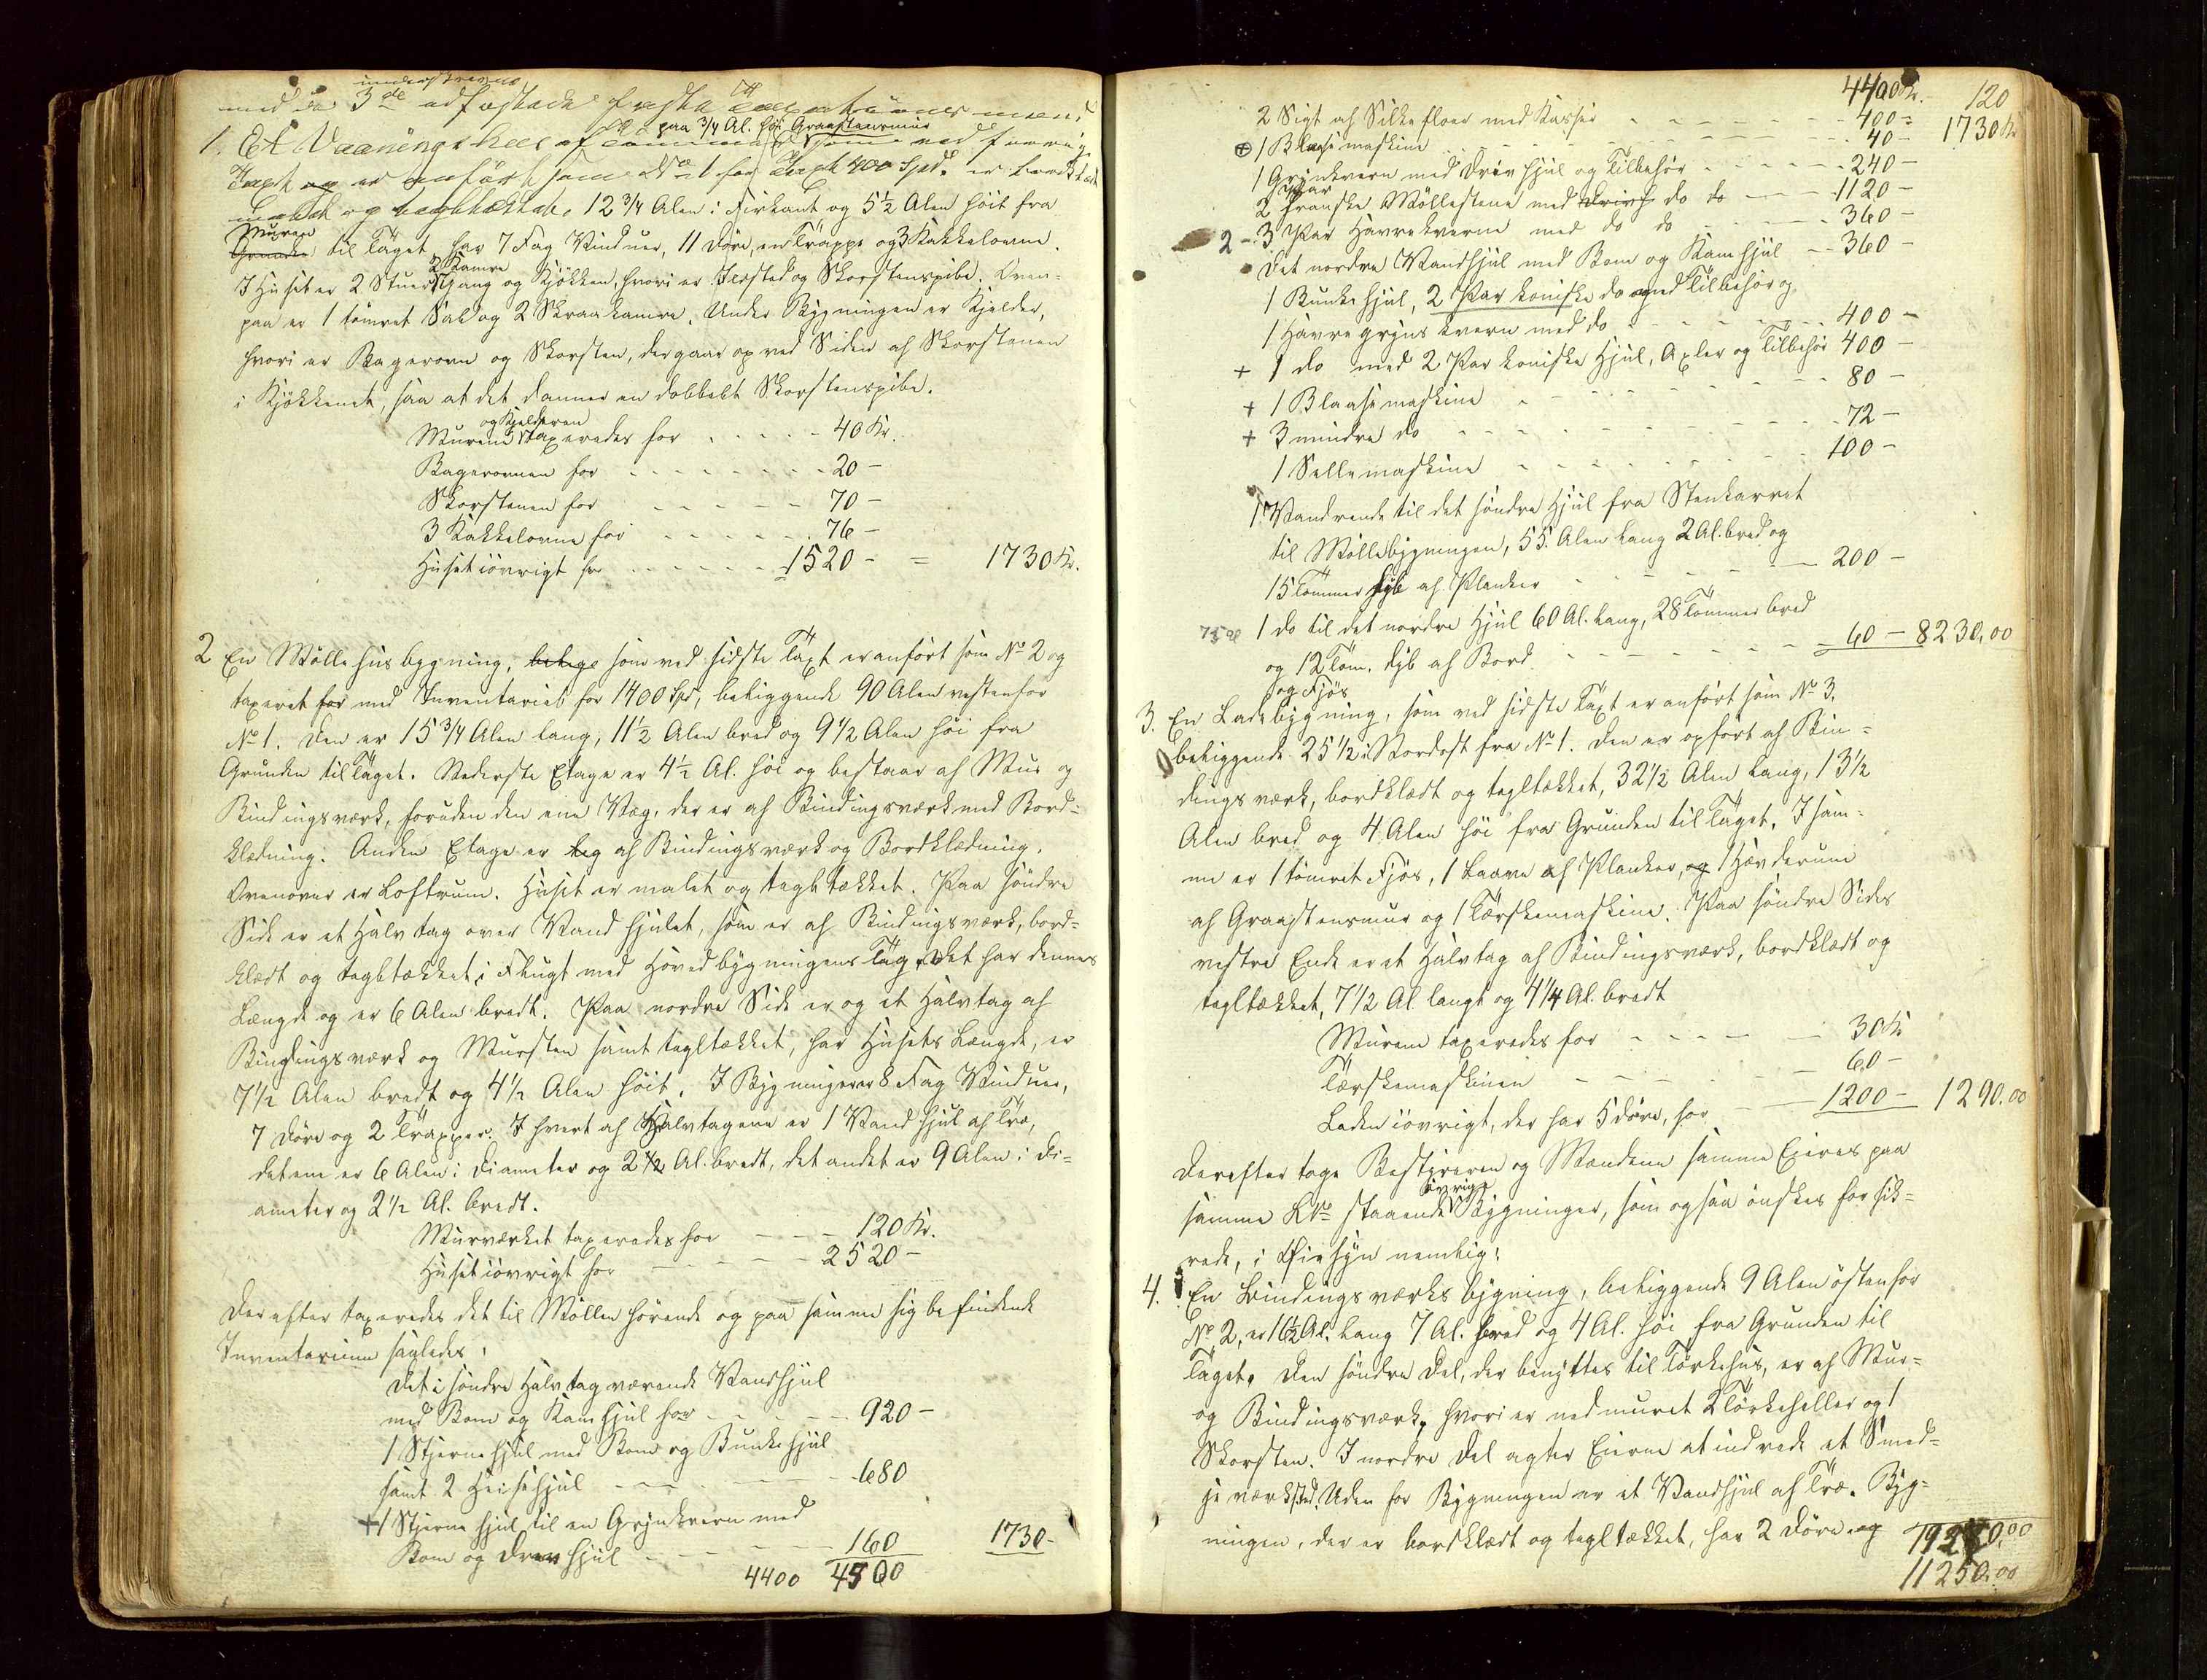 underskrevne
med de 3de
1. Et Vaaningshus af Tømmer paa 3/4 Al. høi Graastensmur som ved forrige
Taxt er anført som No 1 for Taxt 400 Spd. er bordklædt
malet og tagltækket, 12 3/4 Alen i Firkant og 5 1/2 Alen høit fra
Muren
Grunden til Taget, har 7 Fag Vinduer, 11 Døre, en Trappe og 3 Kakkelovne.
I Huset er 2 Stuer, 2 Kamre, Gang og Kjøkken, hvori er Ildsted og Skorstenspibe. Oven-
paa er 1 tømret Sal og 2 Skraakamre. Under Bygningen er Kjelder,
hvori er Bagerovn og Skorsten, der gaar op ved Siden af Skorstenen
i Kjøkkenet, saa at det danner en dobbelt Skorstenspibe.
Murene og Kjelderen taxeredes for - - - 40 Kr.
Bagerovnen for - - - 20 -
Skorstenen for - - - 70 -
3 Kakkelovne for - - - 76 -
Huset iøvrigt for - - - 1520 - = 1730 Kr.
2 En Møllehusbygning, belige som ved sidste Taxt er anført som No 2 og
taxeret for med Inventariet for 1400 Spd, beliggende 90 Alen vestenfor
No 1. Den er 15 3/4 Alen lang, 11 1/2 Alen bred og 9 1/2 Alen høi fra
Grunden til Taget. Nederste Etage er 4 1/2 Al. høi og bestaar af Mur og
Bindingsværk, foruden den ene Væg, der er af Bindingsværk med Bord-
klædning. Anden Etage er af Bindingsværk og Bordklædning.
Ovenover er Loftrum. Huset er malet og tagltækket. Paa søndre
Side er et Halvtag over Vandhjulet, som er af Bindingsværk, bord-
klædt og tagltækket, i Flugt med Hovedbygningens Tag. Det har dennes
Længde og er 6 Alen bredt. Paa nordre Side er og et Halvtag af
Bindingsværk og Mursten samt tagltækket, har Husets Længde, er
7 1/2 Alen bredt og 4 1/2 Alen høit. I Bygningen er 8 Fag Vinduer,
7 Døre og 2 Trapper. I hvert af Halvtagene er 1 Vandhjul af Træ,
det ene er 6 Alen i Diameter og 2 1/2 Al. bredt, det andet er 9 Alen i Di-
ameter og 2 1/2 Al. bredt.
Murværket taxeredes for - - - 120 Kr.
Huset iøvrigt for - - - 2520 -
Derefter taxeredes det til Møllen hørende og paa samme sig befindende
Inventarium saaledes:
Det i søndre Halvtag værende Vandhjul
med Bom og Kamhjul for - - - 920 -
1 Stjernehjul med Bom og Bunkehjul
samt 2 Heisehjul - - - 680
+ 1 Stjernehjul til en Grynkvern med
Bom og Drivhjul - - - 160 1730 -
4400 4500
4400 Kr. 120
2 Sigt af Silkefloer med Kasser - - - 400 = 1730 Kr
+ 1 Blaasemaskine - - - 40 -
1 Grynkvern med Drivhjul og Tilbehør - - - 240 -
2 Par franske Møllestene med Drivh do do - 1120 -
2 - 3 Par Havrekverne med do do - - - 360 -
Det nordre Vandhjul med Bom og Kamhjul - - 360 -
1 Bunkehjul, 2 Par koniske do med Tilbehør og
1 Havregryns kvern med do - - - 400 -
+ 1 do med 2 Par koniske Hjul, Axler og Tilbehør 400 -
+ 1 Blaasemaskine - - - 80 -
+ 3 mindre do - - - 72 -
1 Sellemaskine - - - 100 -
1 Vandrende til det søndre Hjul fra Stenkarret
til Møllebygningen, 55 Alen lang 2 Al. bred og
15 Tommer dyb af Planker - - - 200 -
75 al 1 do til det nordre Hjul 60 Al. lang, 28 Tommer bred
og 12 Tom. dyb af Bord - - - 60 - 8230,00
og Fjøs
3. En Ladebygning, som ved sidste Taxt er anført som No 3.
beliggende 25 1/2 i Nordost fra No 1. Den er opført af Bin-
dingsværk, bordklædt og tagltækket, 32 1/2 Alen lang, 13 1/2
Alen bred og 4 Alen høi fra Grunden til Taget. I sam-
me er 1 tømret Fjøs, 1 Laave af Planker, og 1 Høvderum
af Graastensmur og 1 Tærskemaskine. Paa søndre Sides
vestre Ende er et Halvtag af Bindingsværk, bordklædt og
tagltækket, 7 1/2 Al langt og 4 1/4 Al. bredt
Murene taxeredes for - - - 30 Kr
Tærskemaskinen - - - 60 -
Laden iøvrigt, der har 5 Døre, for - - 1200 - 1290.00
Derefter toge Bestyreren og Mændene samme Eieres paa
samme LNo staaende øvrige Bygninger, som ogsaa ønskes forsik-
rede, i Øiesyn nemlig:
4. En Bindingsværks bygning, beliggende 9 Alen østenfor
No 2, er 16 1/2 Al. lang 7 Al. bred og 4 Al. høi fra Grunden til
Taget. Den søndre Del, der benyttes til Tørkehus, er af Mur-
og Bindingsværk, hvori er nedmuret 2 Tørkeheller og 1
Skorsten. I nordre Del agter Eierne at indrede et Smed-
jeværksted. Uden for Bygningen er et Vandhjul af Træ. Byg-
ningen, der er bordklædt og tagltækket, har 2 Døre og
11250.00